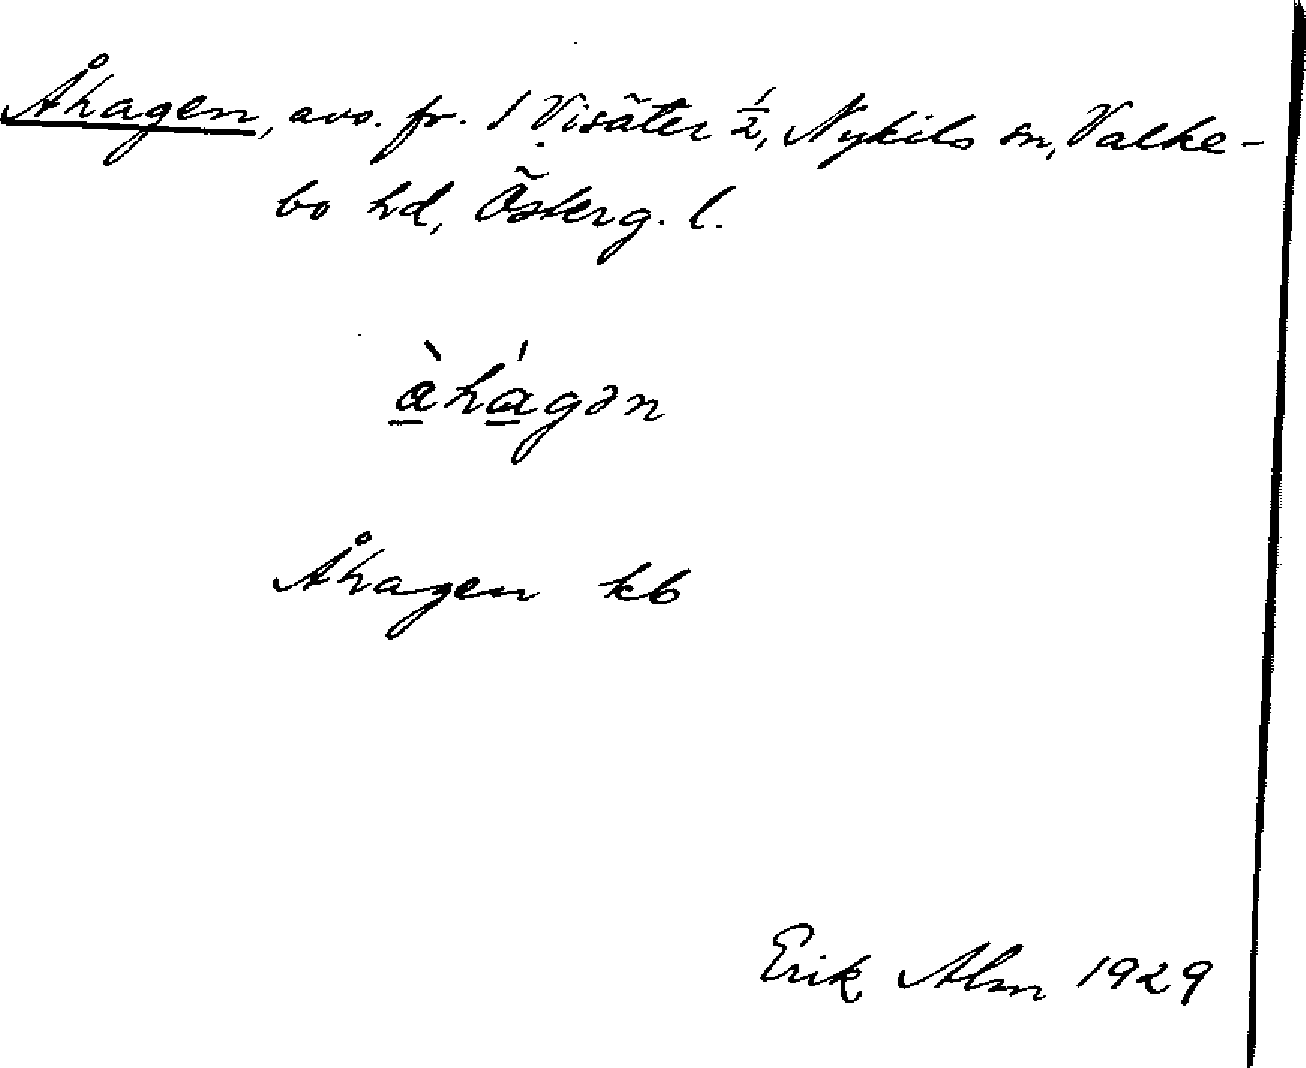 Åhagen, avs. fr. 1 Visäter ½, Nykils sn, Valke-
bo hd, Österg. l.
à̲há̲gən
Åhagen kb
Erik Alm 1929